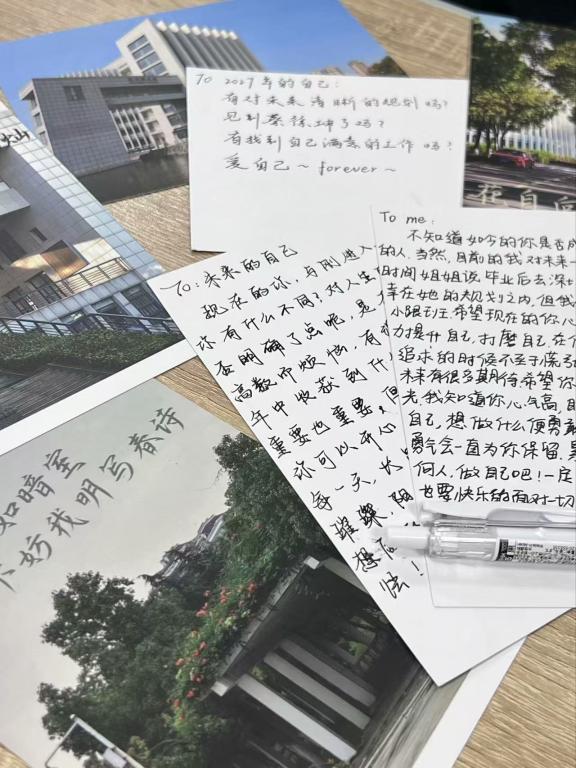 To 2027年的自己:
有对未来清晰的规划吗?
见到蔡徐坤了吗?
有找到自己满意的工作吗?
爱自己~forever~
To:未来的自己
现在的你,与刚进入
你有什么不同?对人生
否明确了点呢,是
高数而烦恼,有
年中收获到什
重要也重要,但
你可以开心
每一天,
璀璨,阳
To me:
不知道如今的你是否成
的人,当然,目前的我对未来一
但时间姐姐说毕业后去深
圳在她的规划之内,但我
小跟班王,希望现在的你,心
力提升自己,打磨自己,在
追求的时候不至于慌
未来有很多期待,希望你
光,我知道你心气高,
自己,想做什么便勇敢
勇气会一直为你保留,
何人,做自己吧!一定
也要快乐的面对一切
如暗室
不妨我明写春诗
在自
火山